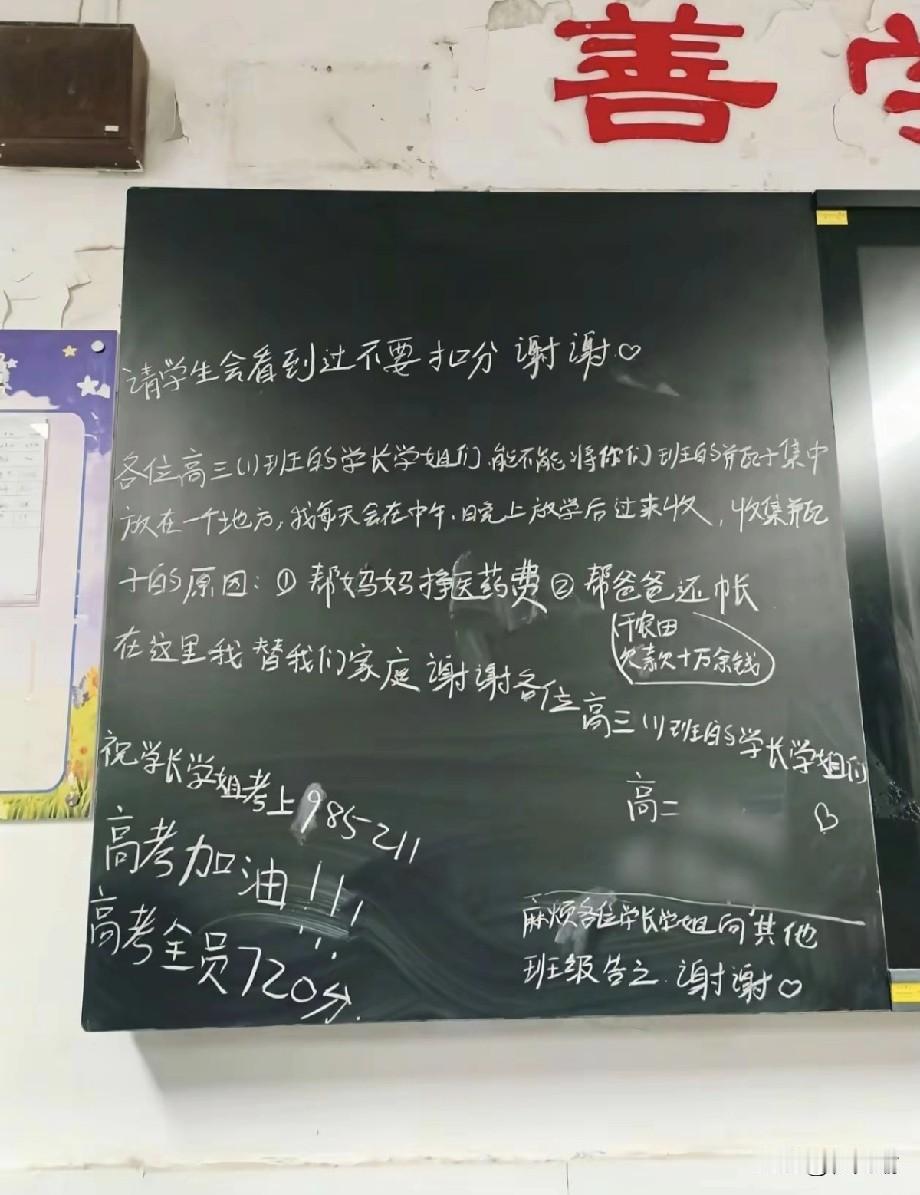 善
请学生会看到过不要扣分 谢谢♡
各位高三(1)班的学长学姐们,能不能将你们班的瓶子集中
放在一个地方,我每天会在中午、晚上放学后过来收,收集瓶
子的原因:①帮妈妈挣医药费②帮爸爸还帐
干农田
欠款十万余钱
在这里我替我们家庭谢谢各位高三(1)班的学长学姐们
高二 ♡
祝学长学姐考上985 211
高考加油!!!
高考全员720分.
麻烦各位学长学姐向其他
班级告之.谢谢♡